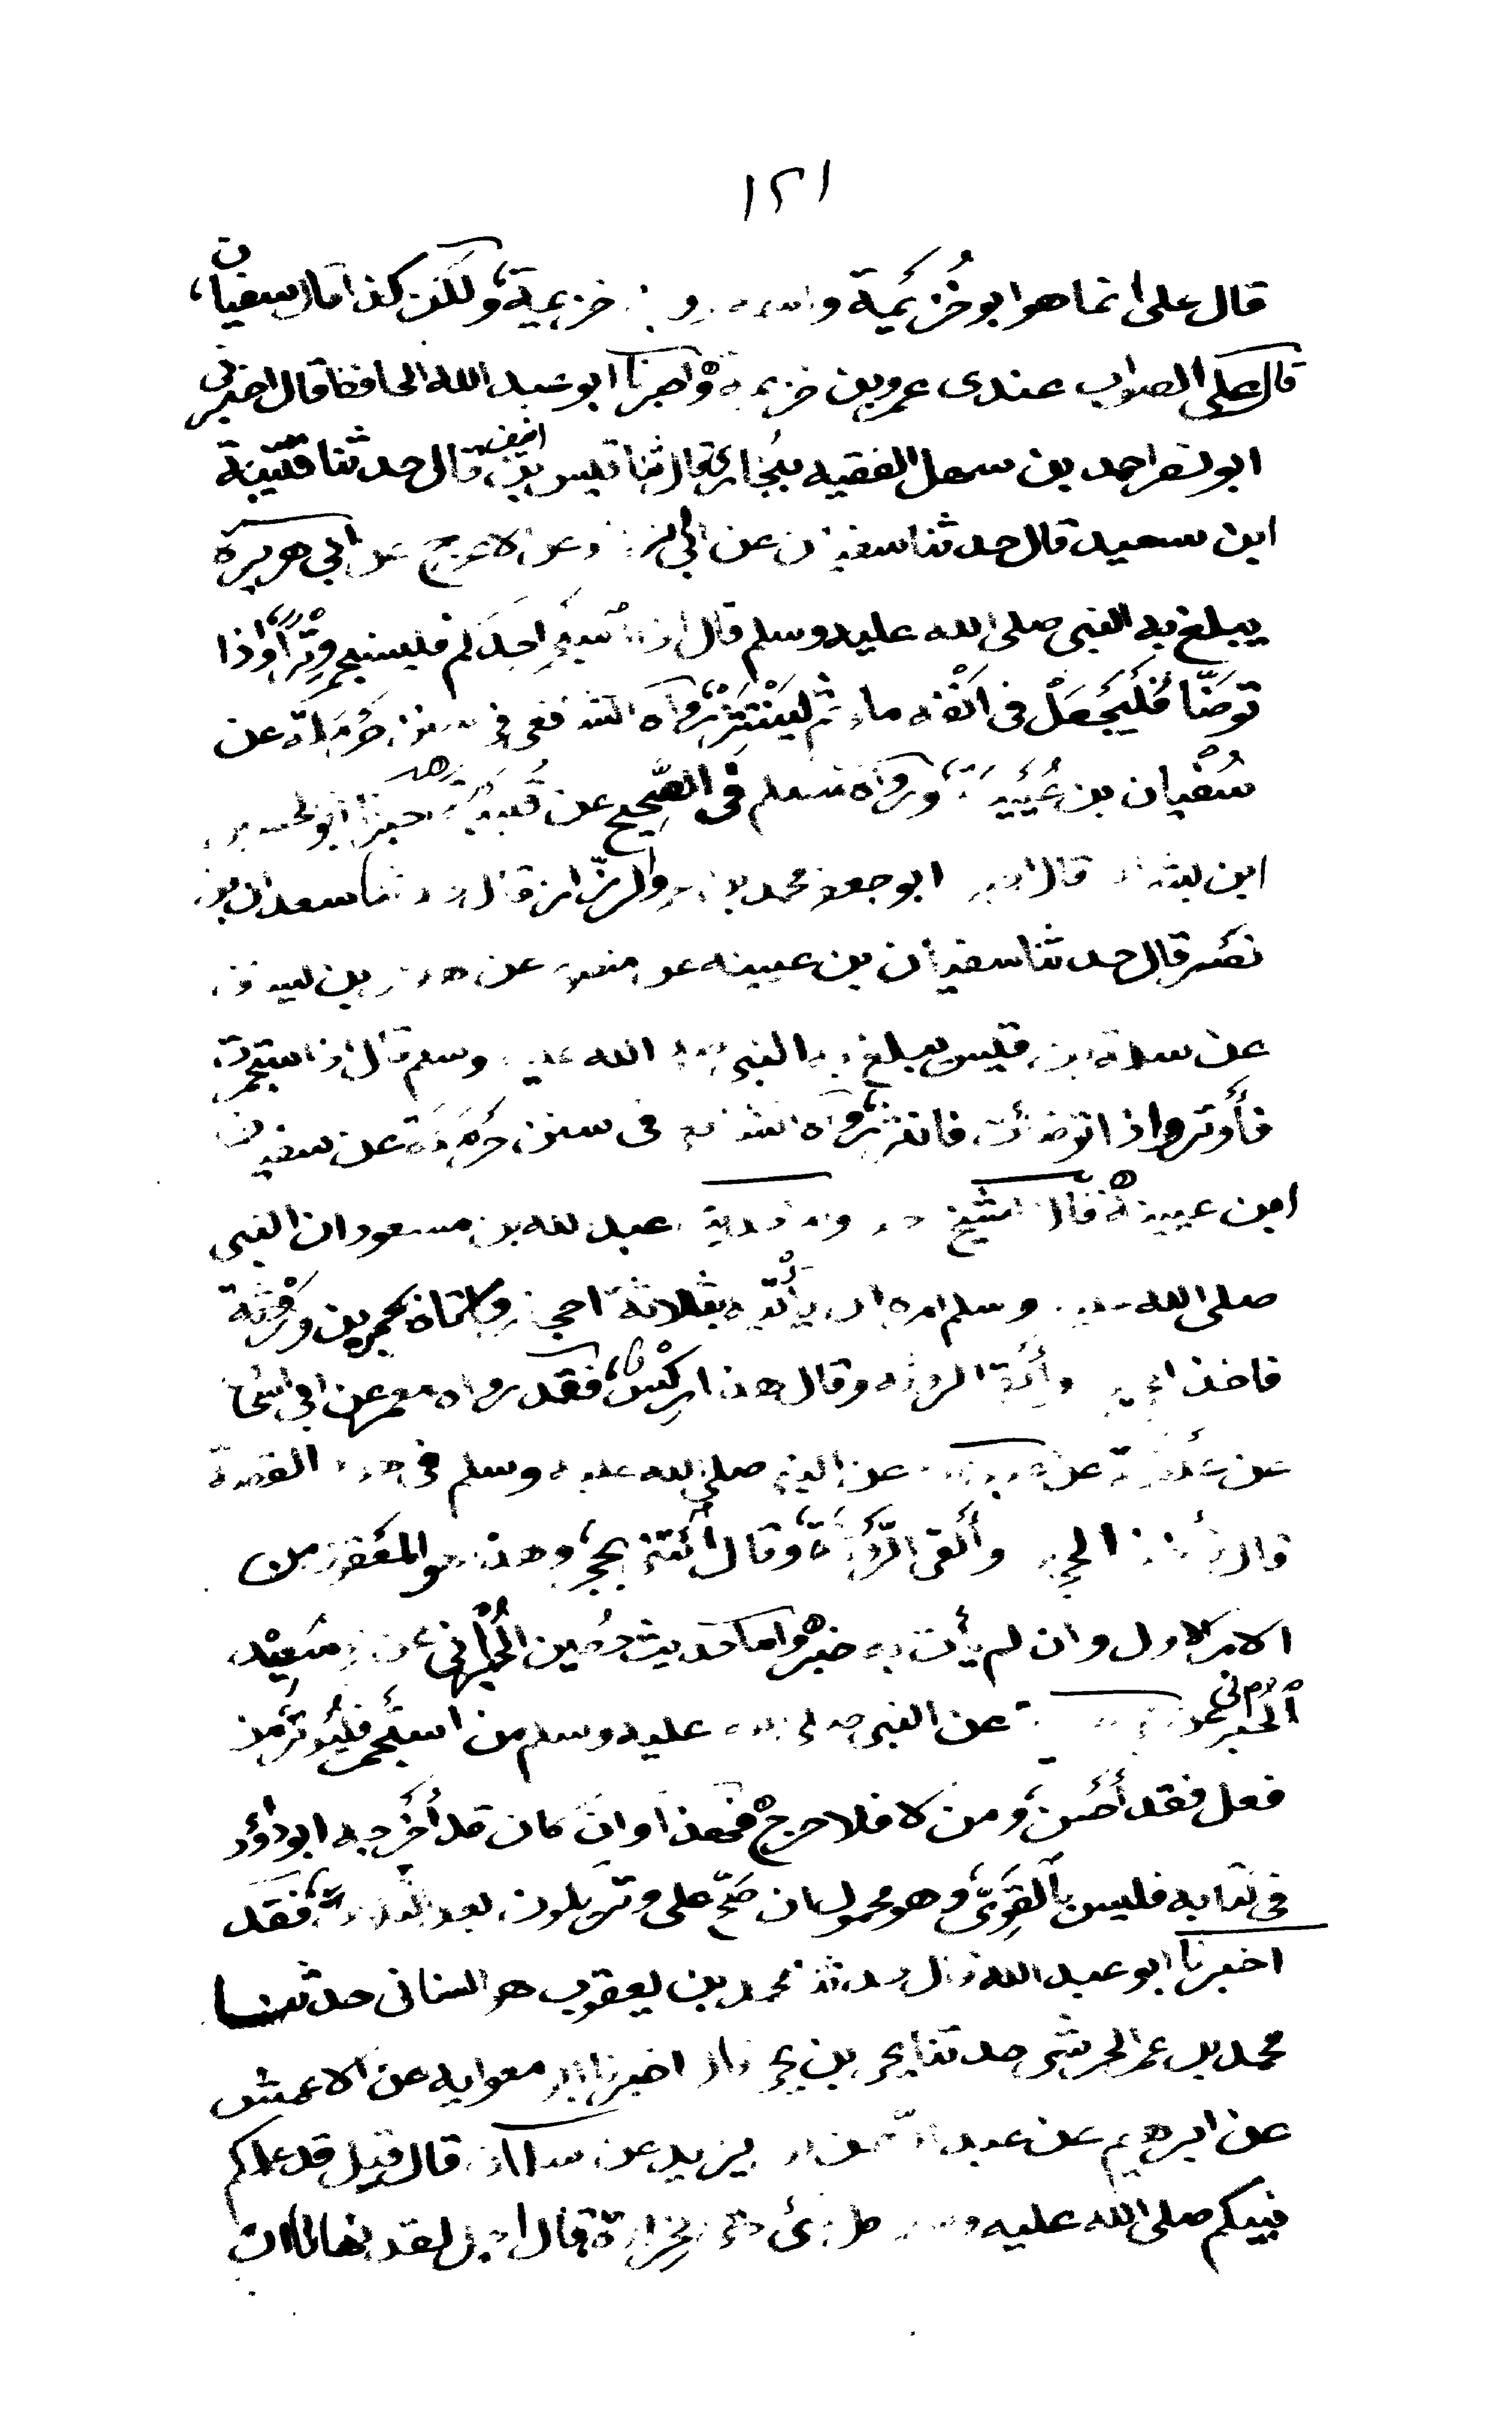 ١٢١
قال على انما هو ابو خُزَيمَة واسمه عمرو بن خزيمة، ولكن كذا قال سفيان،
قال على الصواب عندى عمرو بن خزيمة، واخبرنا ابو عبد الله الحافظ قال اخبرنى
ابو نصر احمد بن سهل الفقيه ببُخارى قال ثنا قيس بن انيف قال حدثنا قتيبة
ابن سعيد قال حدثنا سفيان عن ابى الزناد عن الاعرج عن ابى هريرة
يبلغ به النبى صلى الله عليه وسلم قال اذا استجمر احدكم فليستجمر وِتْرًا، واذا
توضَّأ فَليَجعَلْ فى انْفه ماء ثم ليَنْتَثِرْ، رواه الشافعى فى سنن حَرْمَلَة عن
سُفْيان بن عُيَيْنَة، ورواه مسلم فى الصَّحِيح عن قُتَيْبَة، اخبرنا ابو الحسين
ابن بشران قال اخبرنا ابو جعفر محمد بن عمرو الرزّاز قال حدثنا سعدان بن
نَصْر قال حدثنا سفيان بن عيينه عن منصور عن هلال بن يساف
عن سلمة بن قيس يبلغ به النبى صلى الله عليه وسلم قال اذا استجمرت
فأَوتر واذا توضأت فانتثر، رواه الشافعى فى سنن حَرْمَلَة عن سفيان
ابن عيينة، قال الشيخ عبد الله بن مسعود ان النبى
صلى الله عليه وسلم امره ان يأتيه بثلاثة احجار، واتاه بحجرين ورَوْثة
فاخذ الحجرين وأَلقى الروثه وقال هذا رِكْسٌ، فقد رواه معمر عن ابى اسحاق
عن علقمة عن عن النبى صلى الله عليه وسلم فى هذه القصة
قال الحجرين وأَلقى الرَّوْثَة، وقال ائتنى بحجر، وهذا هو المعقول من
الامر الاول وان لم يأت به خبر، واما حديث حُصين الحُبْرانى عن ابى سَعِيْد
الحُبْرانى عن النبى صلى الله عليه وسلم من استجمر فليُوتر، من
فعل فقد أحْسن، ومن لا فلا حرج، فهذا وان كان قد أخْرجه ابو داؤد
فى كتابه فليس بالقَوِىّ، وهو محمول ان صَحّ على وتر يكون بعد الثلاثة، فقد
اخبرنا ابو عبد الله قال حدثنا محمد بن يعقوب هو الشيبانى حدثنا
محمد بن عمر الحرشى حدثنا يحيى بن يحيى قال اخبرنا ابو معوايه عن الاعمش
عن ابرهيم عن عبد الرحمن بن يزيد عن سلمان قال قيل قد علمكم
نبيكم صلى الله عليه وسلم كل شئ حتى الخِراءة، قال اجل لقد نهانا ان